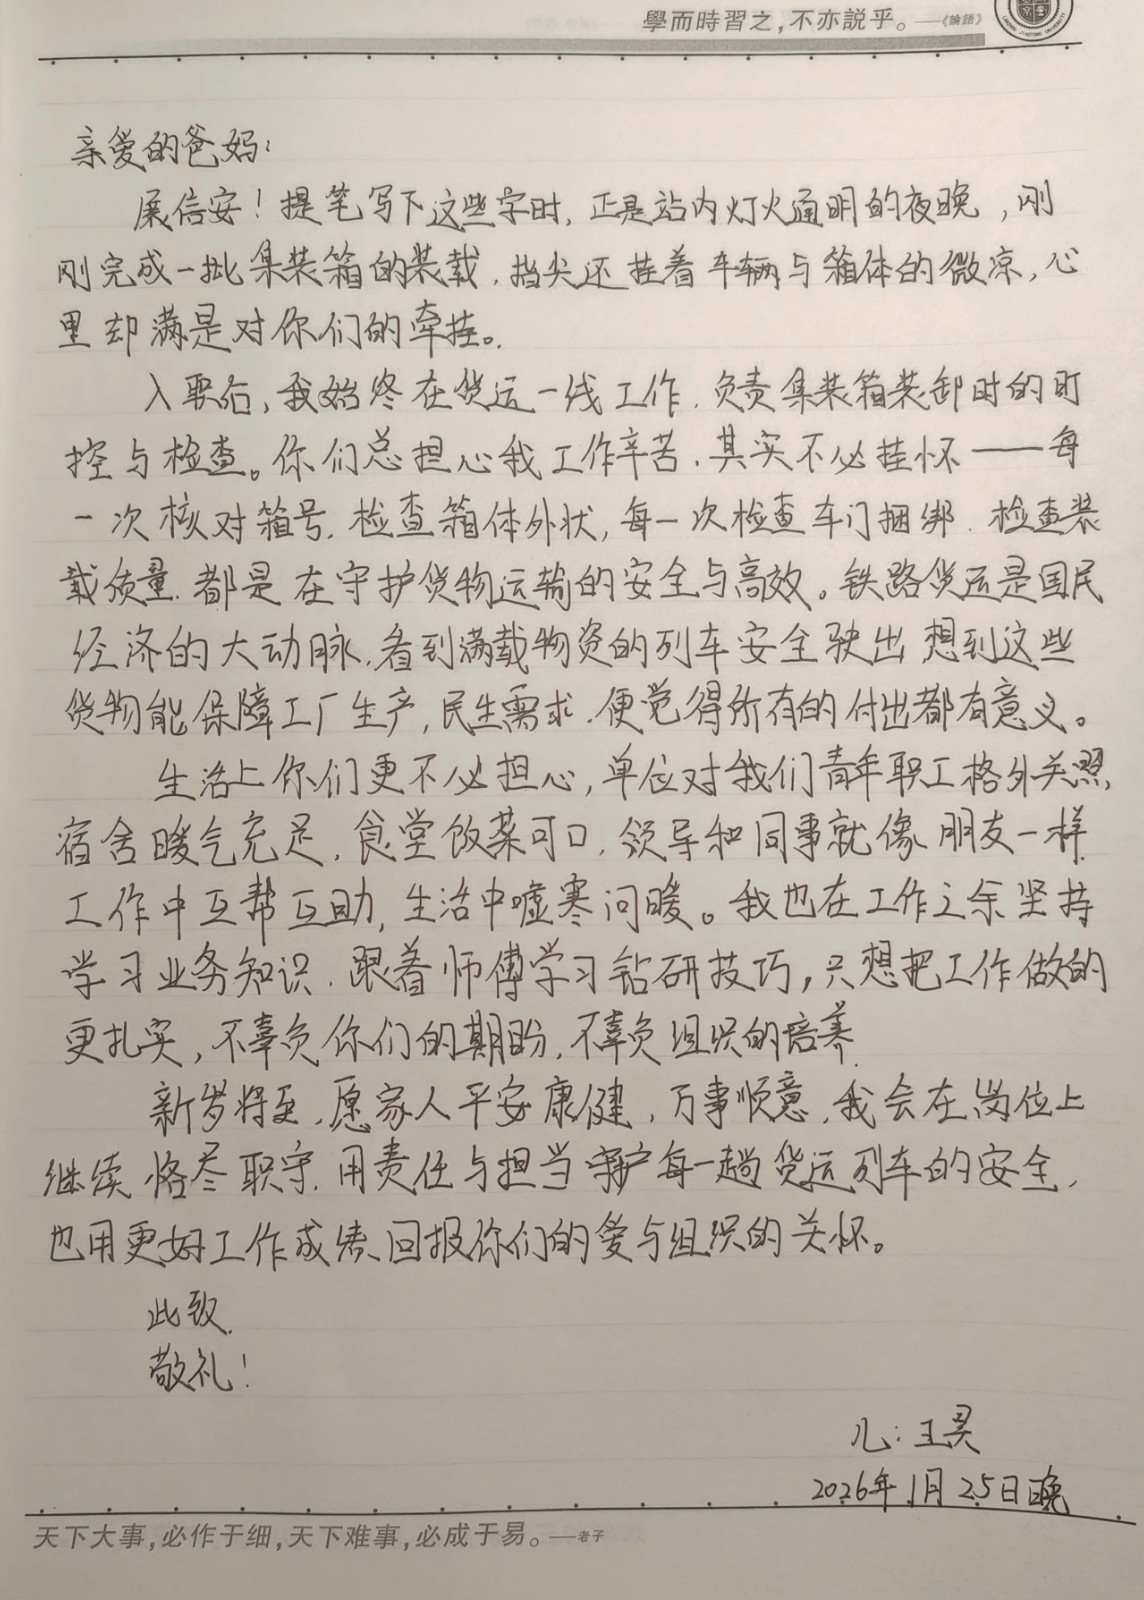 學而時習之，不亦説乎。——《論語》
亲爱的爸妈：
展信安！提笔写下这些字时，正是站内灯火通明的夜晚，刚
刚完成一批集装箱的装载，指尖还挂着车辆与箱体的微凉，心
里却满是对你们的牵挂。
入职后，我始终在货运一线工作，负责集装箱装卸时的盯
控与检查。你们总担心我工作辛苦，其实不必挂怀——每
一次核对箱号，检查箱体外状，每一次检查车门捆绑，检查装
载质量，都是在守护货物运输的安全与高效。铁路货运是国民
经济的大动脉，看到满载物资的列车安全驶出，想到这些
货物能保障工厂生产，民生需求，便觉得所有的付出都有意义。
生活上你们更不必担心，单位对我们青年职工格外关照，
宿舍暖气充足，食堂饭菜可口，领导和同事就像朋友一样，
工作中互帮互助，生活中嘘寒问暖。我也在工作之余坚持
学习业务知识，跟着师傅学习钻研技巧，只想把工作做的
更扎实，不辜负你们的期盼，不辜负组织的培养。
新岁将至，愿家人平安康健，万事顺意，我会在岗位上
继续恪尽职守，用责任与担当守护每一趟货运列车的安全，
也用更好工作成绩回报你们的爱与组织的关怀。
此致
敬礼！
儿：王昊
2026年1月25日晚
天下大事，必作于细，天下难事，必成于易。——老子